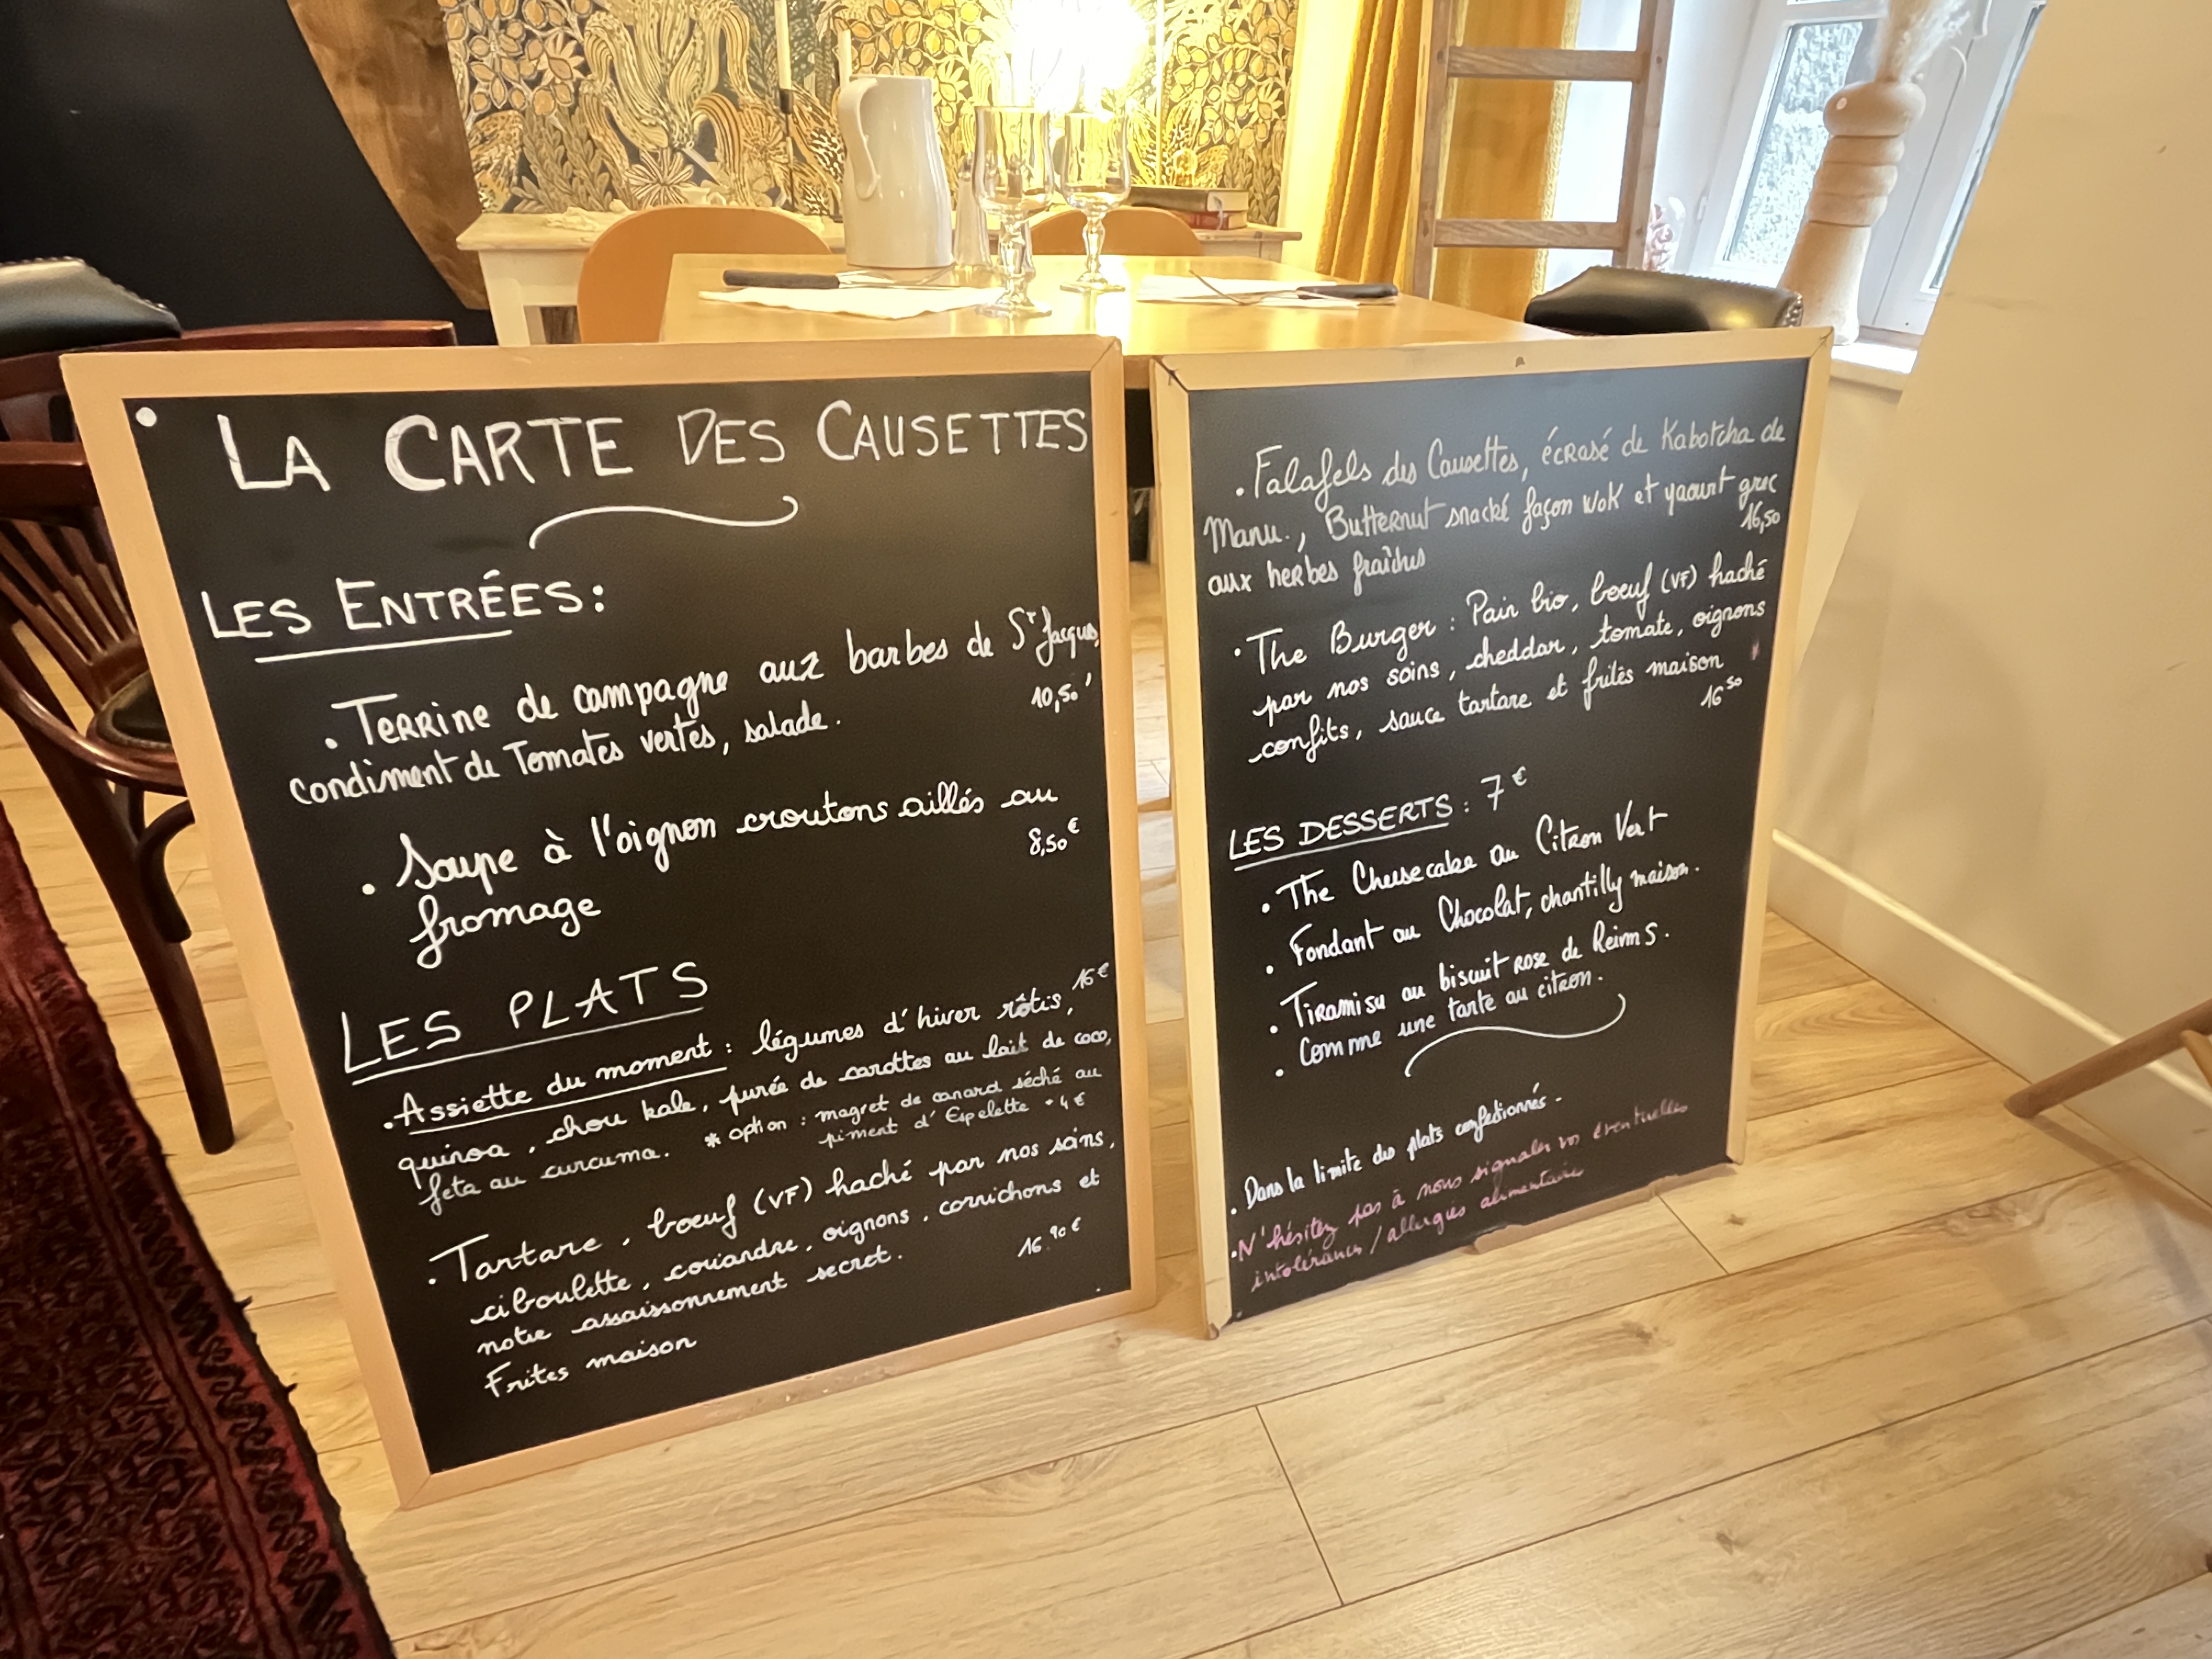 LA CARTE DES CAUSETTES
LES ENTRÉES:
• Terrine de campagne aux barbes de St Jacques,
condiment de Tomates vertes, salade.
10,50
• Soupe à l'oignon croutons aillés au
fromage
8,50€
LES PLATS
• Assiette du moment : légumes d'hiver rôtis, 16€
quinoa, chou kale, purée de carottes au lait de coco,
feta au curcuma. * option : magret de canard séché au
piment d'Espelette + 4€
• Tartare, boeuf (VF) haché par nos soins,
ciboulette, coriandre, oignons, cornichons et
notre assaissonnement secret.
16.90€
Frites maison
• Falafels des Causettes, écrasé de Kabotcha de
Manu., Butternut snacké façon wok et yaourt grec
aux herbes fraîches
16,50
• The Burger : Pain bio, boeuf (VF) haché
par nos soins, cheddar, tomate, oignons
confits, sauce tartare et frites maison
16 50
LES DESSERTS : 7€
• The Cheesecake au Citron Vert
• Fondant au Chocolat, chantilly maison.
• Tiramisu au biscuit rose de Reims.
• Comme une tarte au citron.
• Dans la limite des plats confectionnés.
• N'hésitez pas à nous signaler vos éventuelles
intolérances / allergies alimentaires